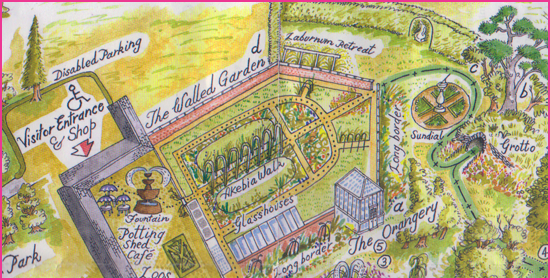 Disabled Parking
Visitor Entrance
& Shop
The Walled Garden
d
Laburnum Retreat
c
b
Long border
Sundial
Grotto
Akebia Walk
Glasshouses
a
The Orangery
Long border
5
3
4
Fountain
Potting
Shed
Café
Loos
Park